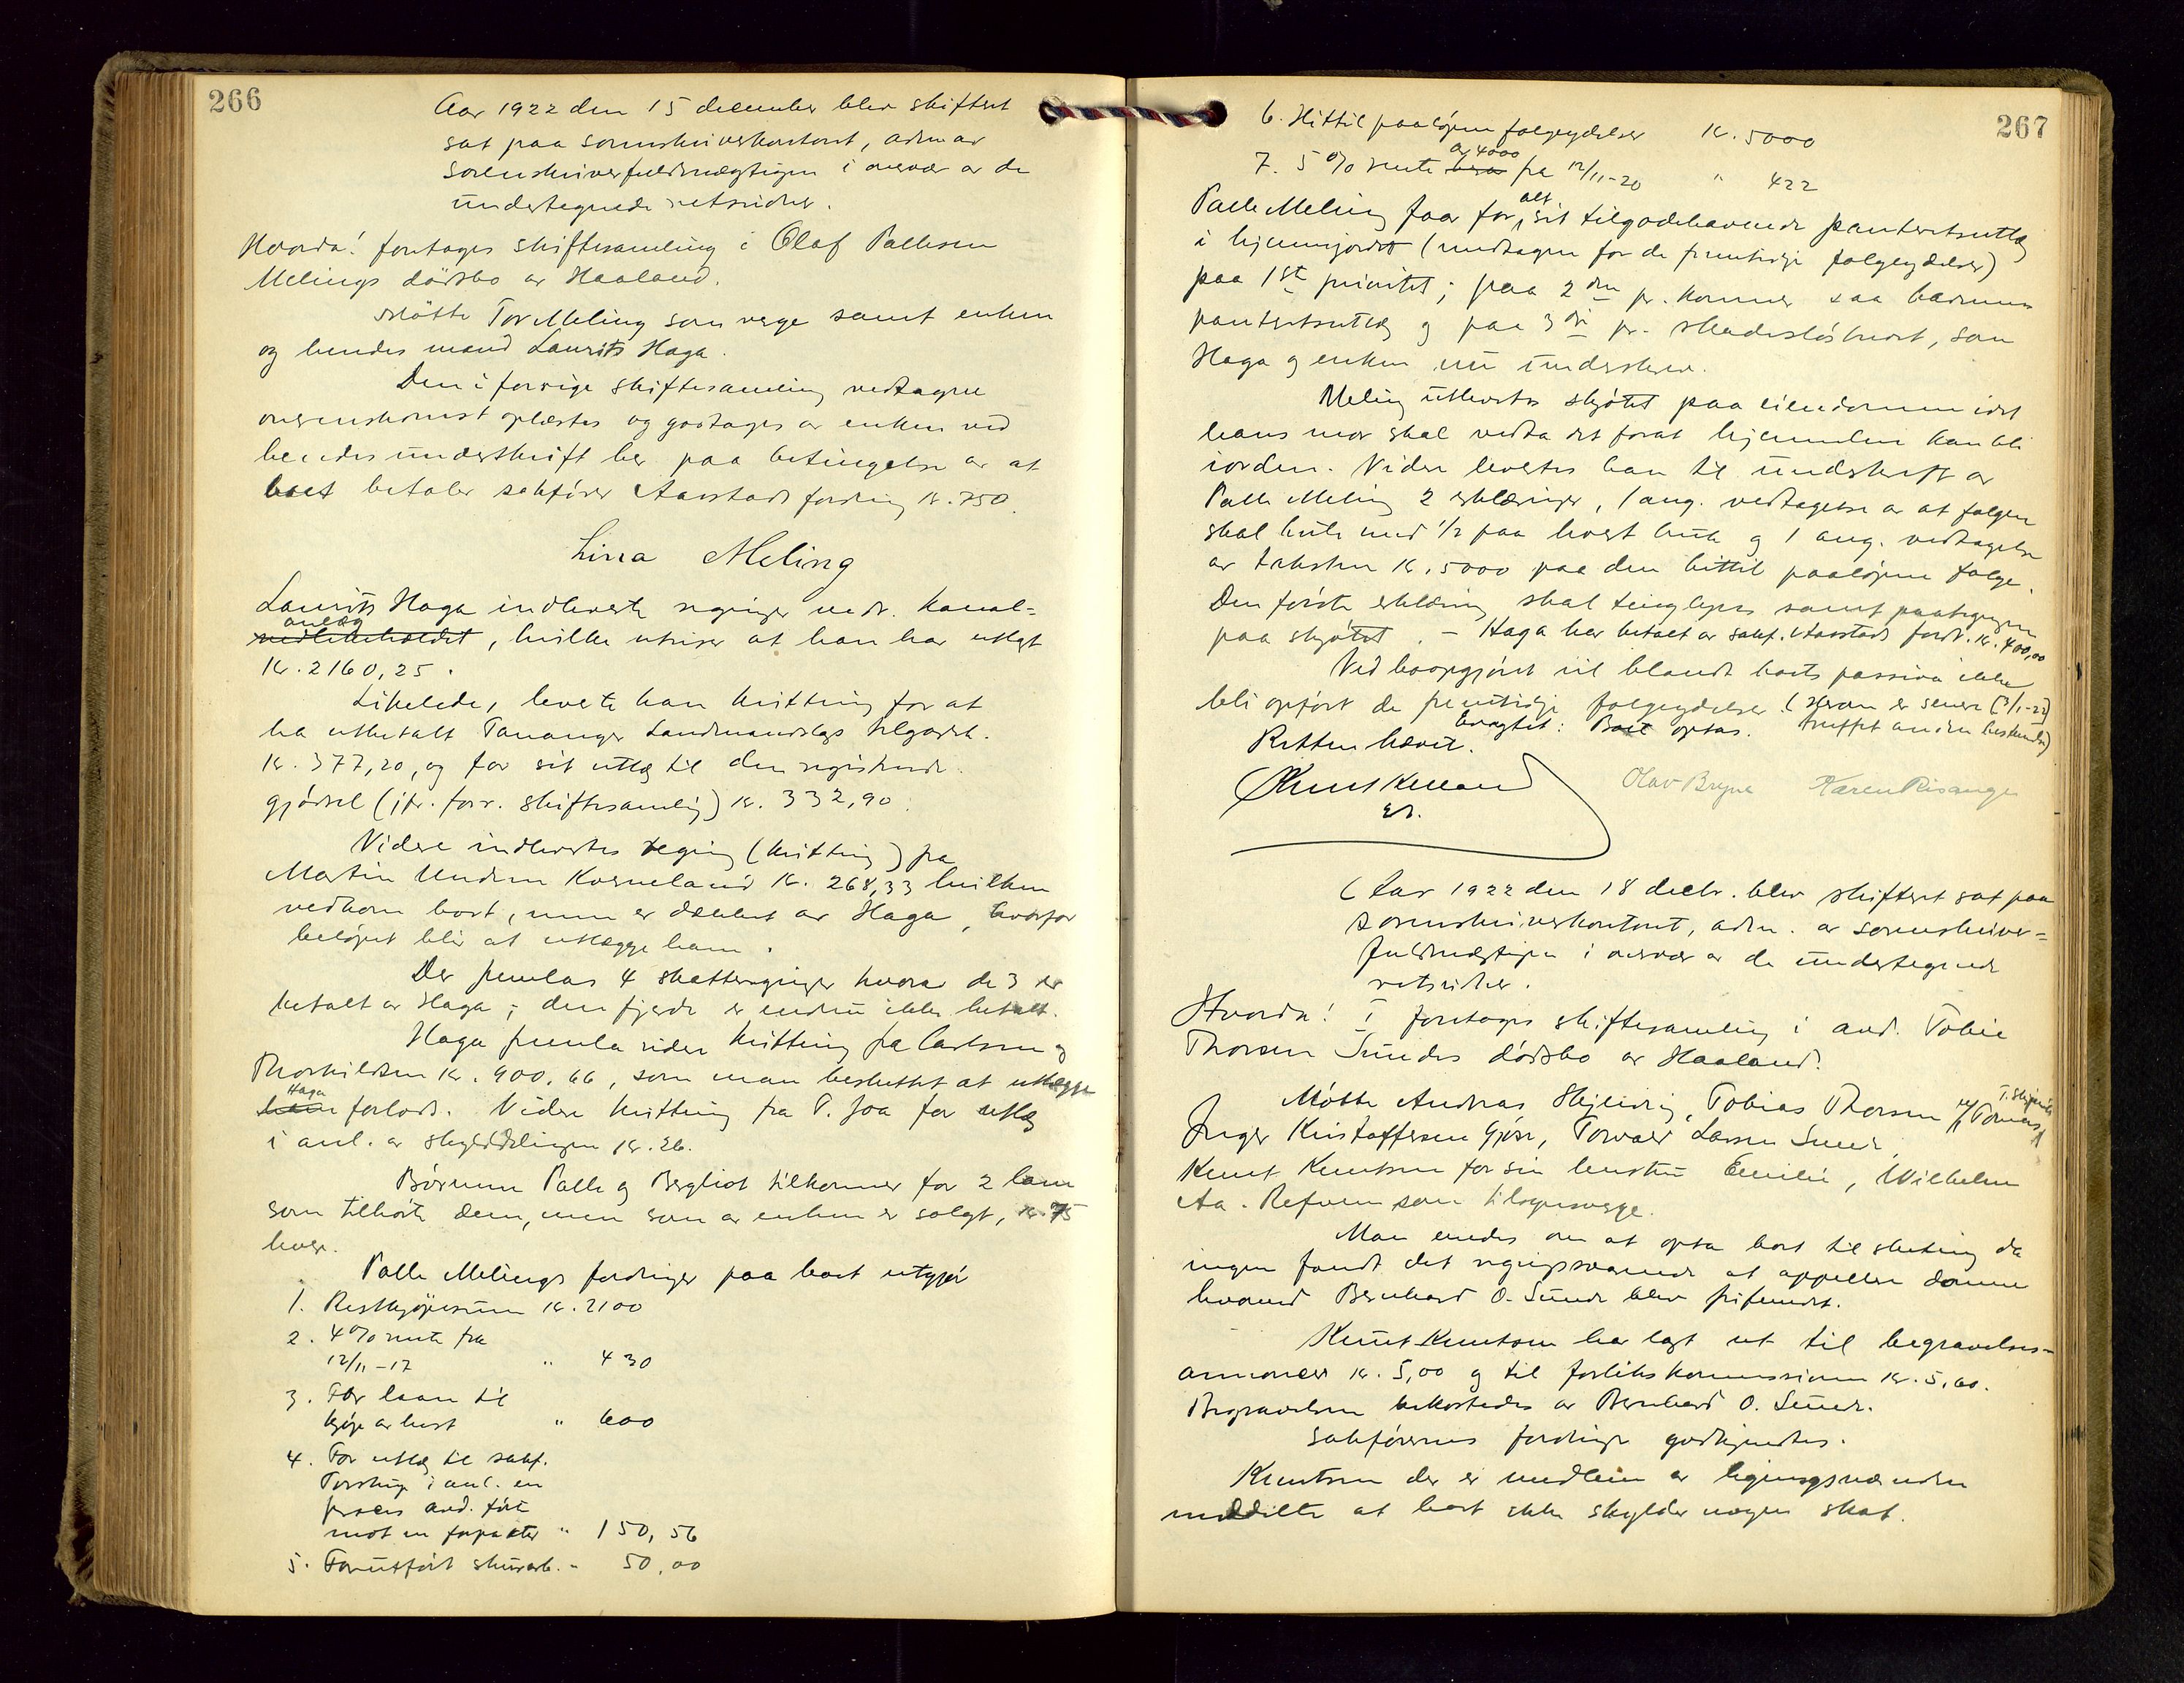 266
Aar 1922 den 15 december blev skifteret
sat paa sorenskriverkontoret, adm av
sorenskriverfuldmægtigen i overvær av de
undertegnede retsvidner.
Hvorda! foretages skiftesamling i Olaf Pallesen
Melings dödsbo av Haaland.
Mötte Tor Meling som verge samt enken
og hendes mand Laurits Haga.
Den i forrige skiftesamling vedtagne
overenskomst oplæstes og godtages av enken ved
hendes underskrift her paa betingelse av at
boet betaler sakförer Aarstads fordring kr. 750.
Lina Meling
Laurits Haga indleverte regninger vedr. kanal-
anlæg
vedlikeholdet, hvilke utviser at han har utlagt
kr. 2160,25.
Likeledes leverte han kvittering for at
ha utbetalt Tananger Landmandslags tilgodeh.
kr. 377,20, og for sit utlæg til den registrerede
gjödsel (jfr. forr. skiftesamling) kr. 332,90.
Videre indlevertes regning (kvittering) fra
Martin Undem Korneland kr. 268,33 hvilken
vedkom boet, men er dækket av Haga, hvorfor
belöpet blir at utlægge ham.
Der fremlas 4 skatteregninger hvorav de 3 er
betalt av Haga; den fjerde er endnu ikke betalt.
Haga fremla videre kvittering fra Carlsen og
Thorkildsen kr. 900.66, som man besluttet at utlægge
Haga
ham forlods. Videre kvittering fra P. Joa for utlæg
i anl. av skylddelingen kr. 26.
Börnene Palle og Bergliot tilkommer for 2 lam
som tilhörte dem, men som av enken er solgt, kr. 75
hver.
Palle Melings fordringer paa boet utgjör
1. Restkjöpesum kr. 2100
2. 4% rente fra
12/11-17 " 430
3. For laan til
kjöp av hest " 600
4. For utlæg til sakf.
Torstrup i anl. en
proces avd. förte
mot en forpakter " 150,56
5. For utfört skurarb. " 50,00
267
6. Hittil paalöpne folgeydelser kr. 5000
av 4000
7. 5% rente herav fra 12/11-20 " 422
alt
Palle Meling faar for sit tilgodehavende panteretsutlæg
i hjemmjordet (undtagen for de fremtidige folgeydelser)
paa 1st prioritet; paa 2den pr. kommer saa barnenes
panteretsutlæg og paa 3die pr. skadeslösbrevet, som
Haga og enken nu underskrev.
Meling utlevertes skjötet paa eiendommen idet
hans mor skal vedta det forat hjemmelen kan bli
i orden. Videre levertes han til underskrift av
Palle Meling 2 erklæringer, 1 ang. vedtagelse av at folgen
skal hvile med 1/2 paa hvert bruk og 1 ang. vedtagelse
av taksten kr. 5000 paa den hittil paalöpne folge.
Den förste erklæring skal tinglyses samt paategnes
paa skjötet. - Haga har betalt av sakf. Aarstads fordr. kr. 400,00
Ved boopgjöret vil blandt boets passiva ikke
bli opfört de fremtidige folgeydelser. (Herom er senere (3/1-23)
bragtet: Boet optas. truffet anden beslutn.)
Retten hævet.
Knut Kielland
Olav Bryne Karen Risanger
Aar 1922 den 18 decbr. blev skifteret sat paa
sorenskriverkontoret, adm. av sorenskriver-
fuldmægtigen i overvær av de undertegnede
retsvidner.
Hvorda! I foretages skiftesamling i avd. Tobie
Thorsen Sundes dödsbo av Haaland.
Mötte Andreas Skjelvig, Tobias Thorsen v/ Tomas
Inger Kristoffersen Gjöse, Torvald Larsen Sunde,
Knut Knutsen for sin hustru Emilie, Wilhelm
Aa. Reform som tilsynsverge.
Man enedes om at opta boet til slutning da
ingen fandt det regningssvarende at appellere dommen
hvorved Bernhard O. Sunde blev frifundet.
Knut Knutsen har lagt ut til begravelses-
annoncer kr. 5,00 og til forlikskommissionen kr. 5,60.
Begravelsen bekostedes av Bernhard O. Sunde.
Sakförernes fordringer godkjendtes.
Knutsen der er medlem av ligningsnævnden
meddelte at boet ikke skylder nogen skat.